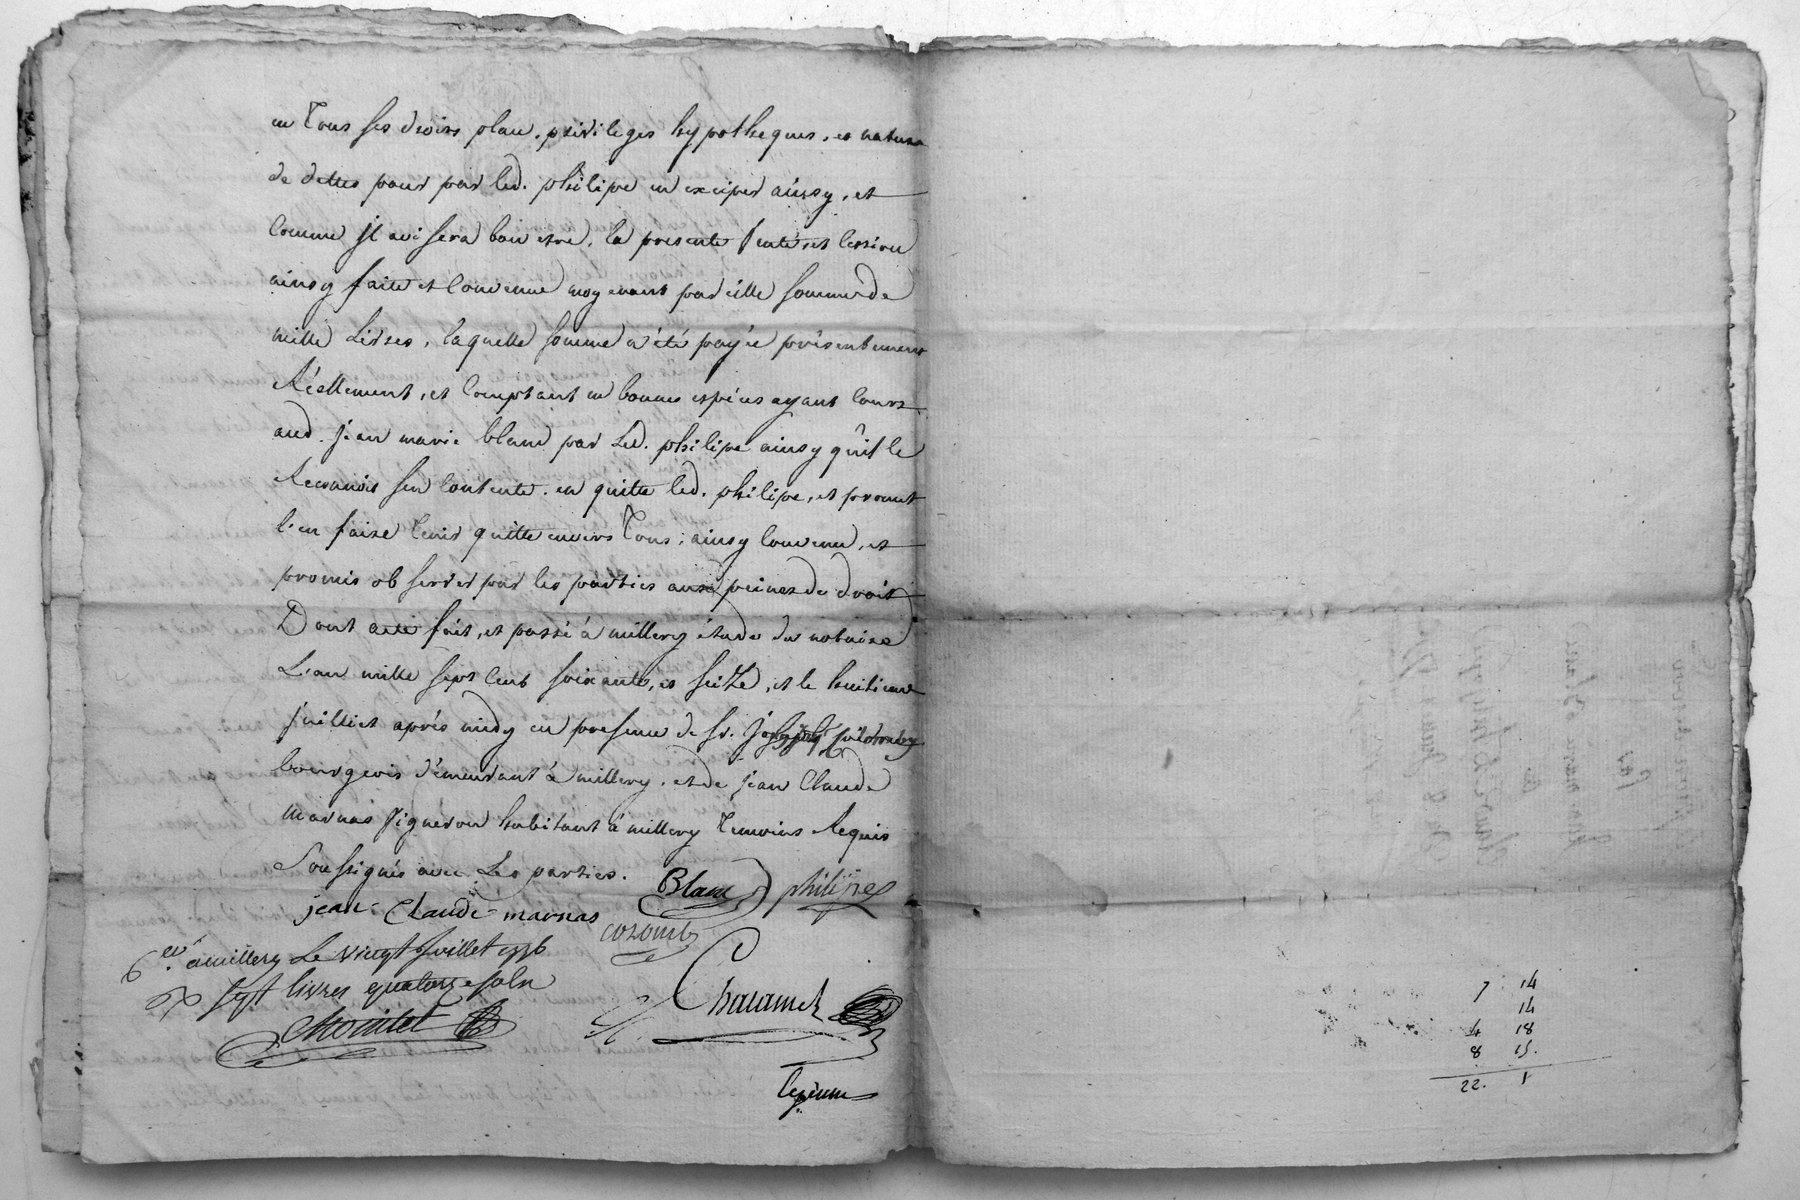 en tous ses droits plan. privileges hypotheques. et nature
de dettes pour par led. philipe en exciper ainsy, et
comme jl avisera bon etre, la presente vente et cession
ainsy faite et convenue moyenant pareille somme de
mille Livres, laquelle somme a été payée présentement
Réellement, et comptant en bonnes espéces ayant cours
aud. jean marie blanc par Led. philipe ainsy qu'il le
Reconnois sen contente. en quitte led. philipe, et promet
l'en faire tenir quitte envers tous; ainsy convenu, et
promis observer par les parties aux peines de droit
Dont acte fait, et passé à millery étude du notaire
L'an mille sept cent soixante, et seize, et le huitieme
juilliet aprés midy en presence de sr. joseph
bourgeois demeurant à millery. et de jean Claude
marnas vigneron habitant à millery temoins Requis
Soussignés avec Les parties.
Blanc philipe
jean Claude marnas
colomb
à millery Le vingt juillet 1776
sept livres quatorze sols
Charamel
7 14
14
4 18
8 15.
22. 1